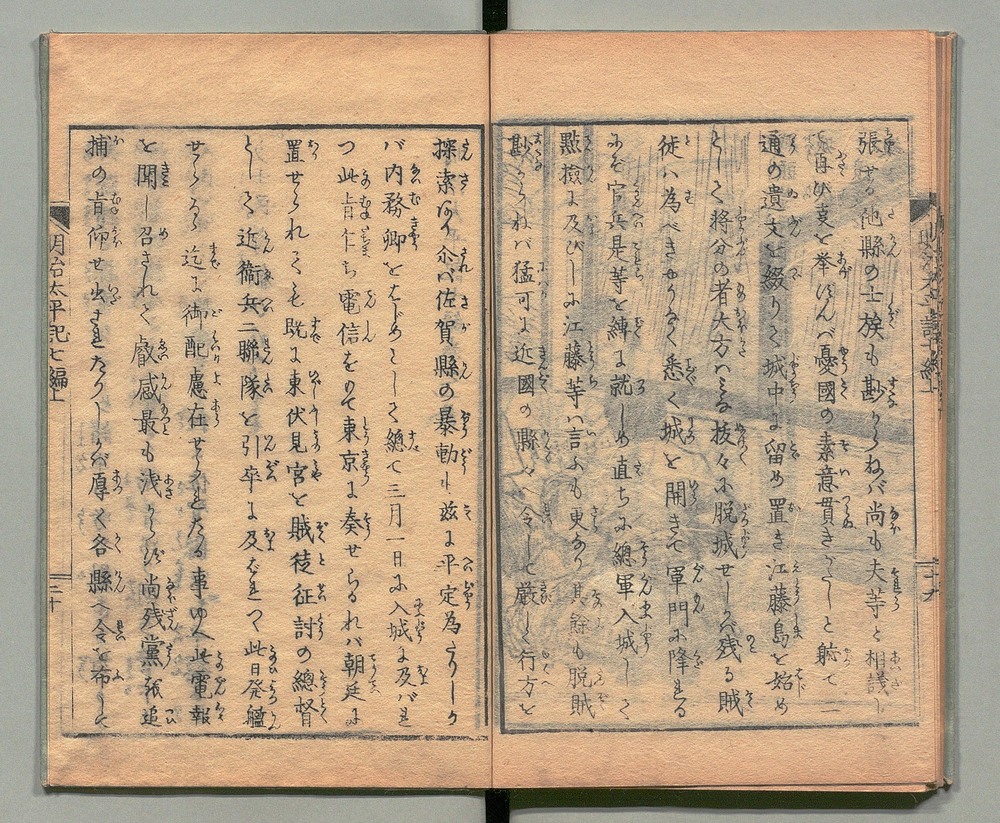 張せる他縣の士族も尠からねバ尚も夫等と相議し
再び㒵を挙けんバ憂國の素意貫きがたしと躮て一
通の遺文を綴りて城中に留め置き江藤島を始め
として将分の者大方ハミな抜々に脱城せしかバ残る賊
徒ハ為べきやうなく悉く城を開きて軍門に降りける
にぞ官兵是等を縛に就しめ直ちに總軍入城して
點檢に及びしに江藤等ハ言ふも更なり其餘も脱賊
尠からねバ猛可に近國の縣々へ令して厳しく行方を
探索なりぬ佐賀縣の暴動も茲に平定為たりしか
バ内務卿をはじめとして總て三月一日に入城に及バれ
つ此旨乍ち電信をもて東京に奏せらるれバ朝廷に
置せられても既に東伏見宮を賊徒征討の總督
として近衞兵二聯隊を引卒に及ばれつ此日発艦
せらるゝ迄に御配慮在せられたる事ゆへ此電報
を聞し召されて叡感最も浅からず尚残黨を追
捕の旨仰せ出されたりしかバ厚く各縣へ令を布して
明治太平記七編上
二十
明治太平記七編上
十九